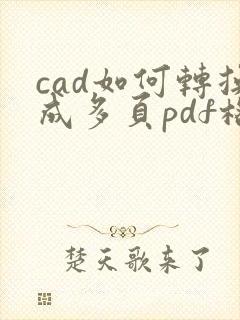 cad如何轉換
成多頁pdf格
楚天歌来了